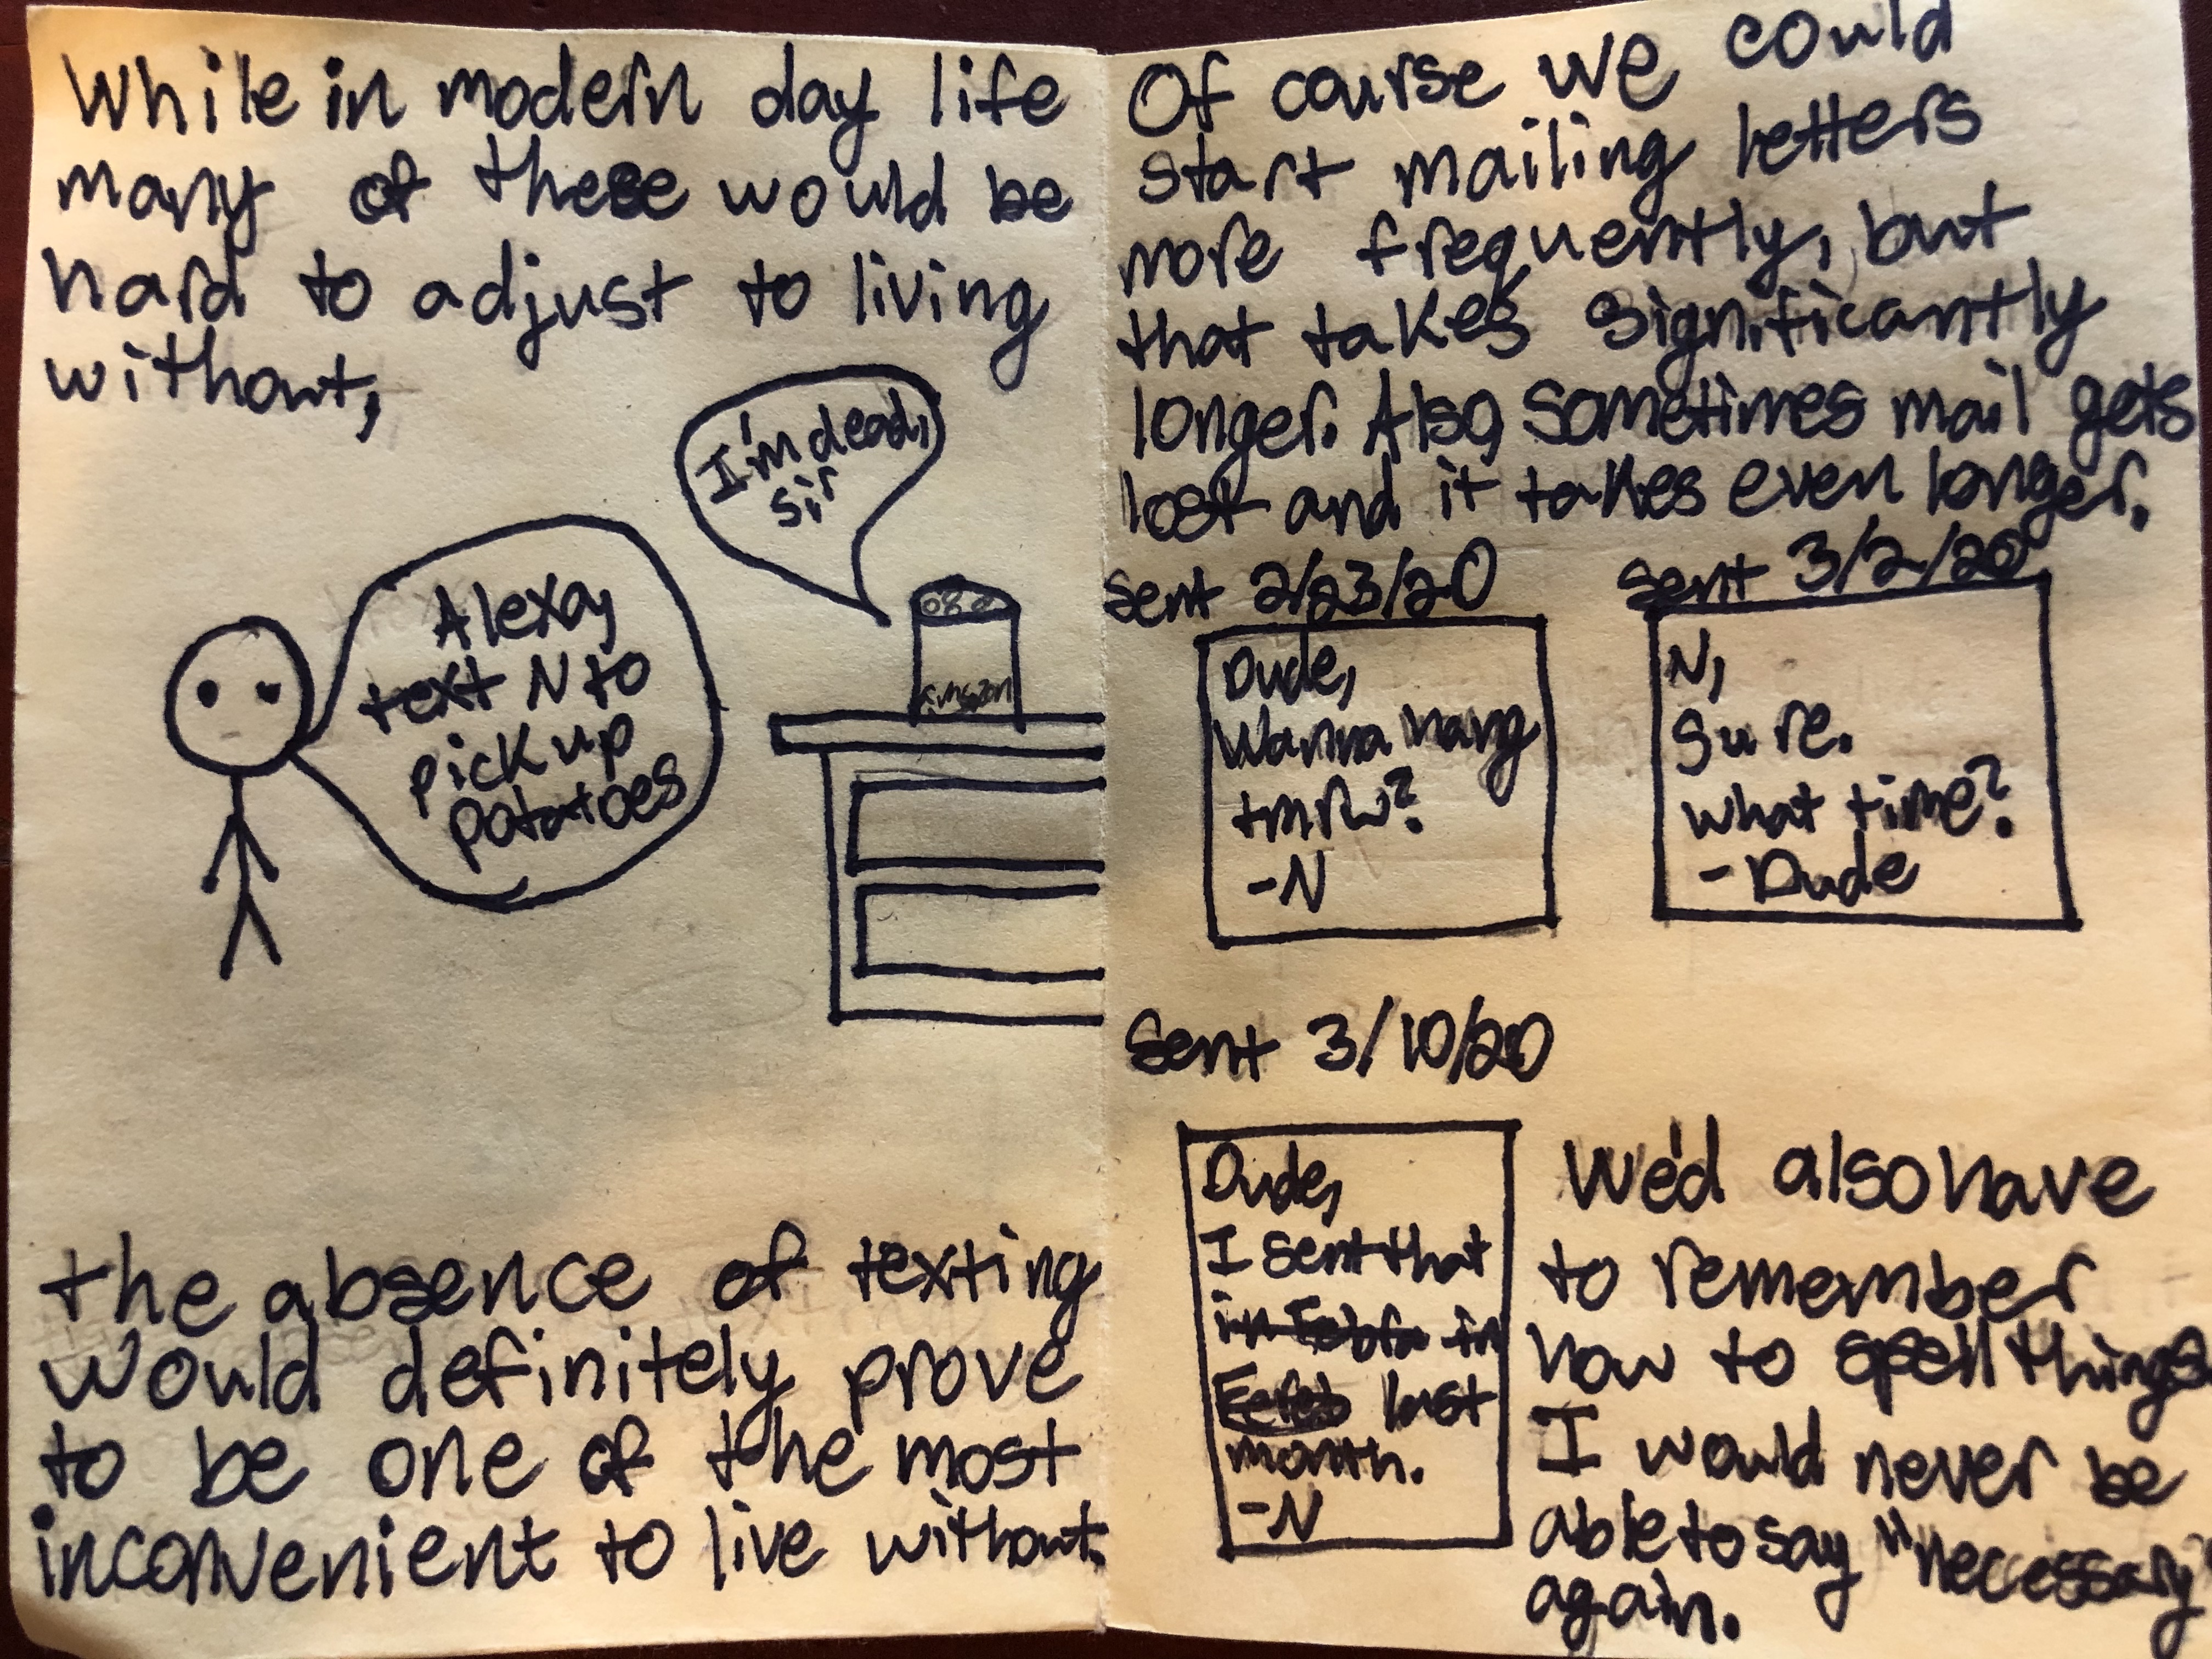 While in modern day life
many of these would be
hard to adjust to living
without,
I'm dead,
sir
Alexa,
text N to
pick up
potatoes
amazon
the absence of texting
would definitely prove
to be one of the most
inconvenient to live without.
Of course we could
start mailing letters
more frequently, but
that takes significantly
longer. Also, sometimes mail gets
lost and it takes even longer.
Sent 2/23/20
Dude,
Wanna hang
tmrw?
-N
Sent 3/2/20
N,
Sure.
What time?
-Dude
Sent 3/10/20
Dude,
I sent that
in in
last
month.
-N
We'd also have
to remember
how to spell things.
I would never be
able to say "necessary"
again.